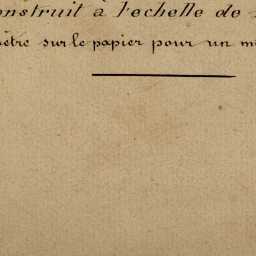 onstruit à l'echelle de
mètre sur le papier pour un m